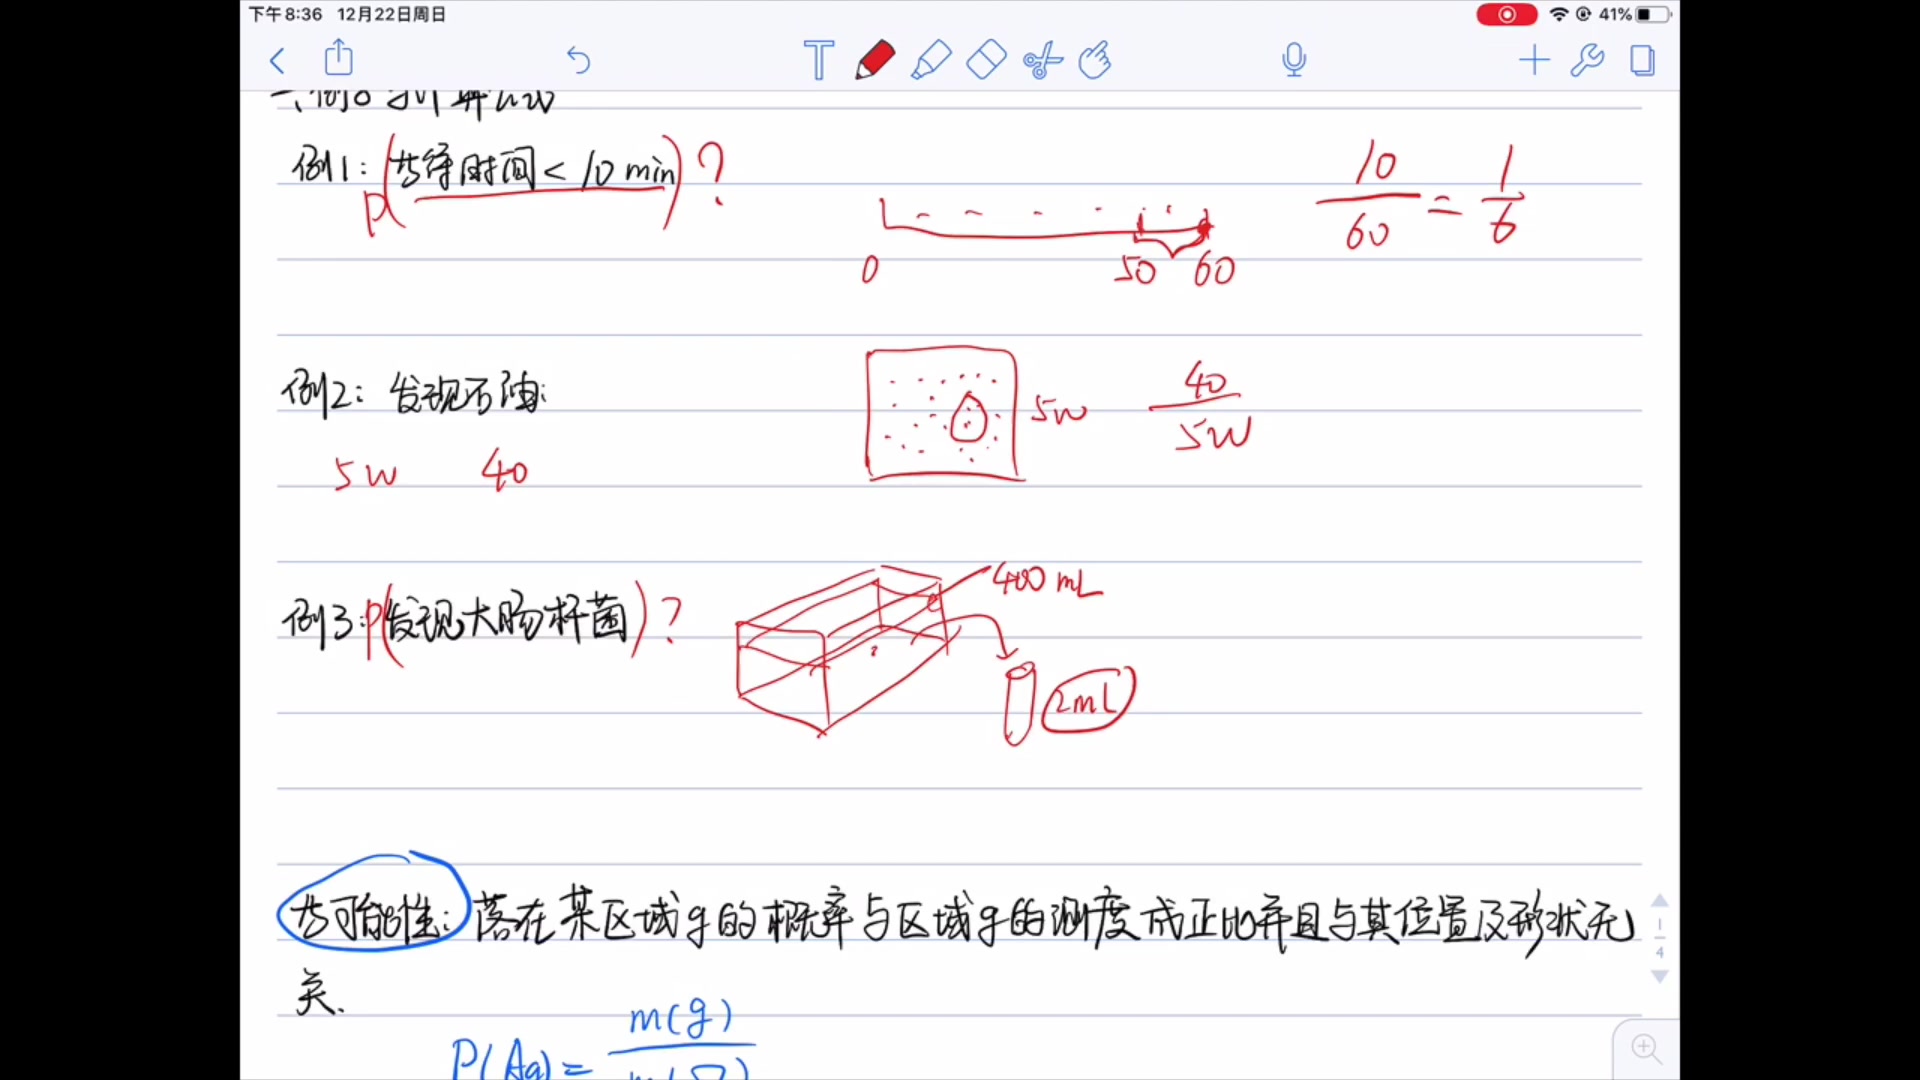 下午8:36 12月22日周日
41%
例1: P(等待时间<10 min)?
0 50 60
10/60 = 1/6
例2: 发现石油:
5w 40
5w
40/5w
例3: P(发现大肠杆菌)?
400 mL
2mL
等可能性: 落在某区域g的概率与区域g的测度成正比并且与其位置及形状无
关.
P(Ag) = m(g)
1
4